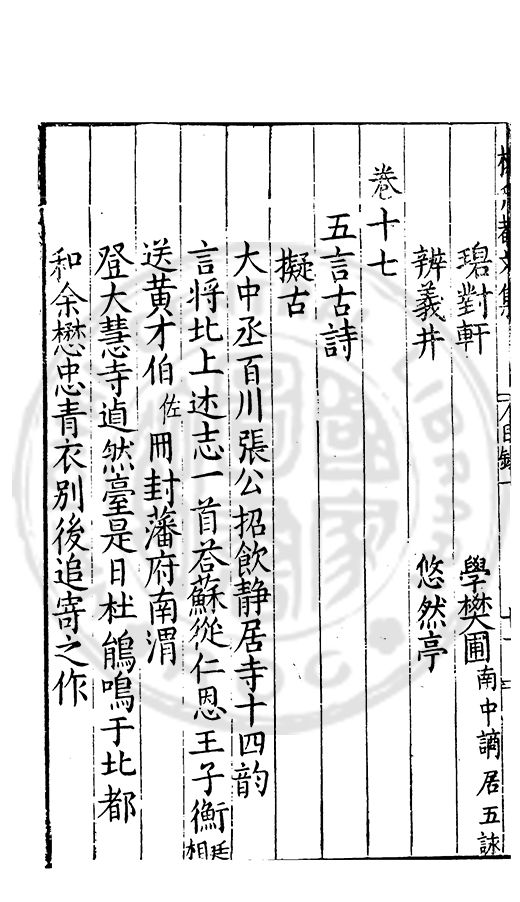 碧對軒 學樊圃南中謫居五詠
辨義井 悠然亭
卷十七
五言古詩
擬古
大中丞百川張公招飲静居寺十四韵
言將北上述志一首荅蘇從仁恩王子衡廷相
送黄才伯佐冊封藩府南渭
登大慧寺逌然臺是日杜鵑鳴于北都
和余懋忠青衣别後追寄之作